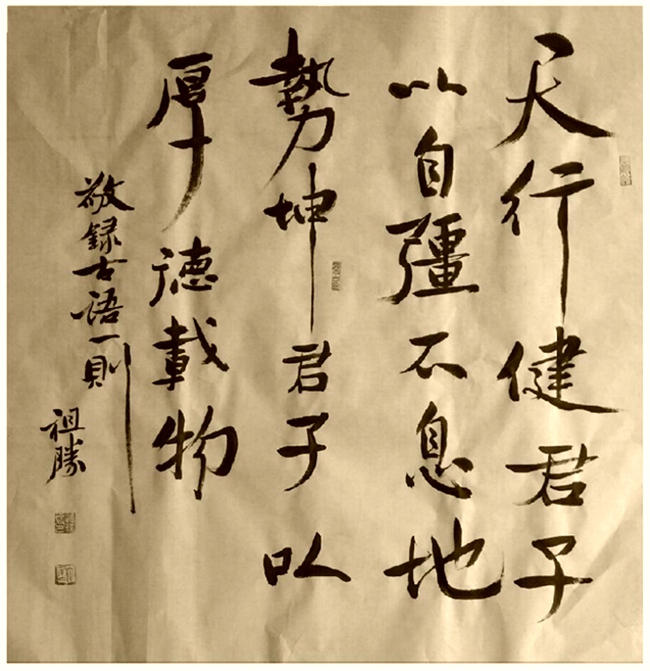 天行健君子
以自彊不息地
勢坤君子以
厚德載物
敬録古语一則
祖勝